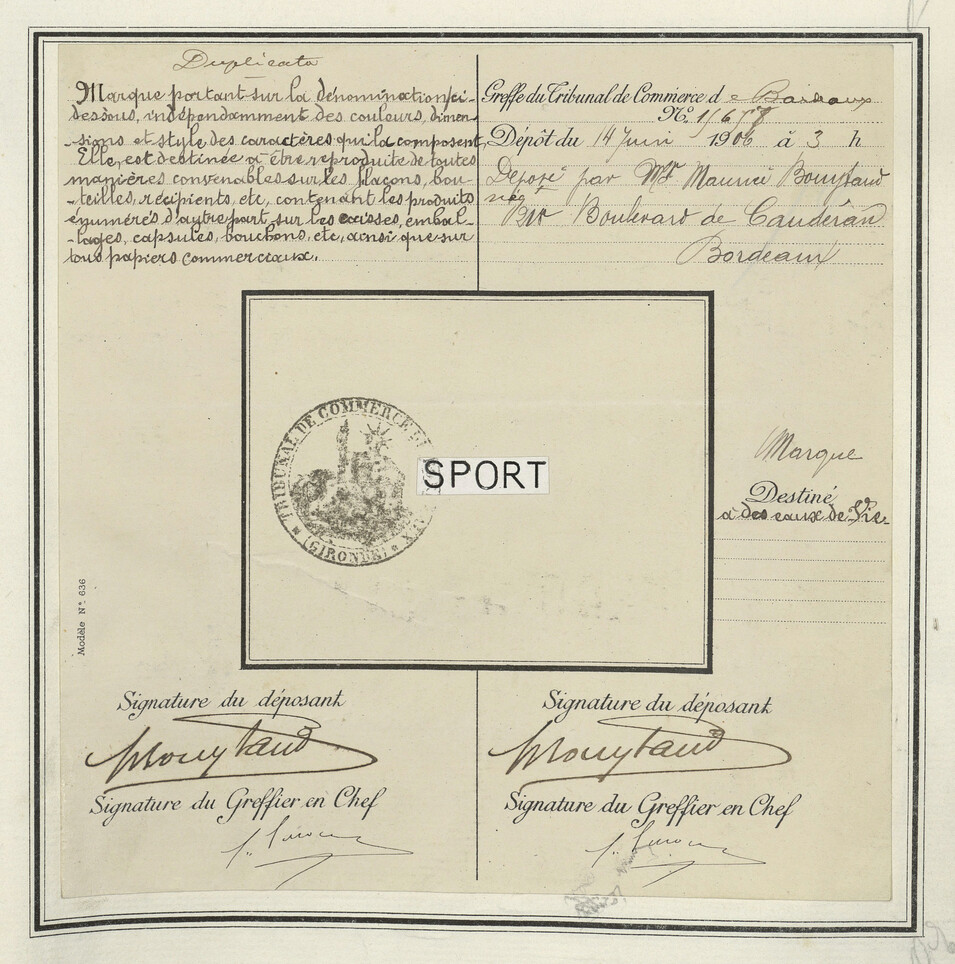 Duplicata
Marque portant sur la dénomination ci-
dessous, indépendamment des couleurs, dimen-
-sions et style des caractères qui la composent
Elle est destinée à être reproduite de toutes
manières convenables sur les flacons, bou-
-teilles, récipients, etc, contenant les produits
énumérés d'autre part, sur les caisses, embal-
-lages, capsules, bouchons, etc, ainsi que sur
tous papiers commerciaux.
Greffe du Tribunal de Commerce de Bordeaux
Dépôt du 14 Juin 1906 à 3 h
Déposé par Mr Maurice Bouytaud
nég
Boulevard de Caudéran
Bordeaux
TRIBUNAL DE COMMERCE
(GIRONDE)
SPORT
Marque
Destiné
à des eaux de Vie
Modèle N° 636
Signature du déposant
Bouytaud
Signature du Greffier en Chef
Signature du déposant
Bouytaud
Signature du Greffier en Chef